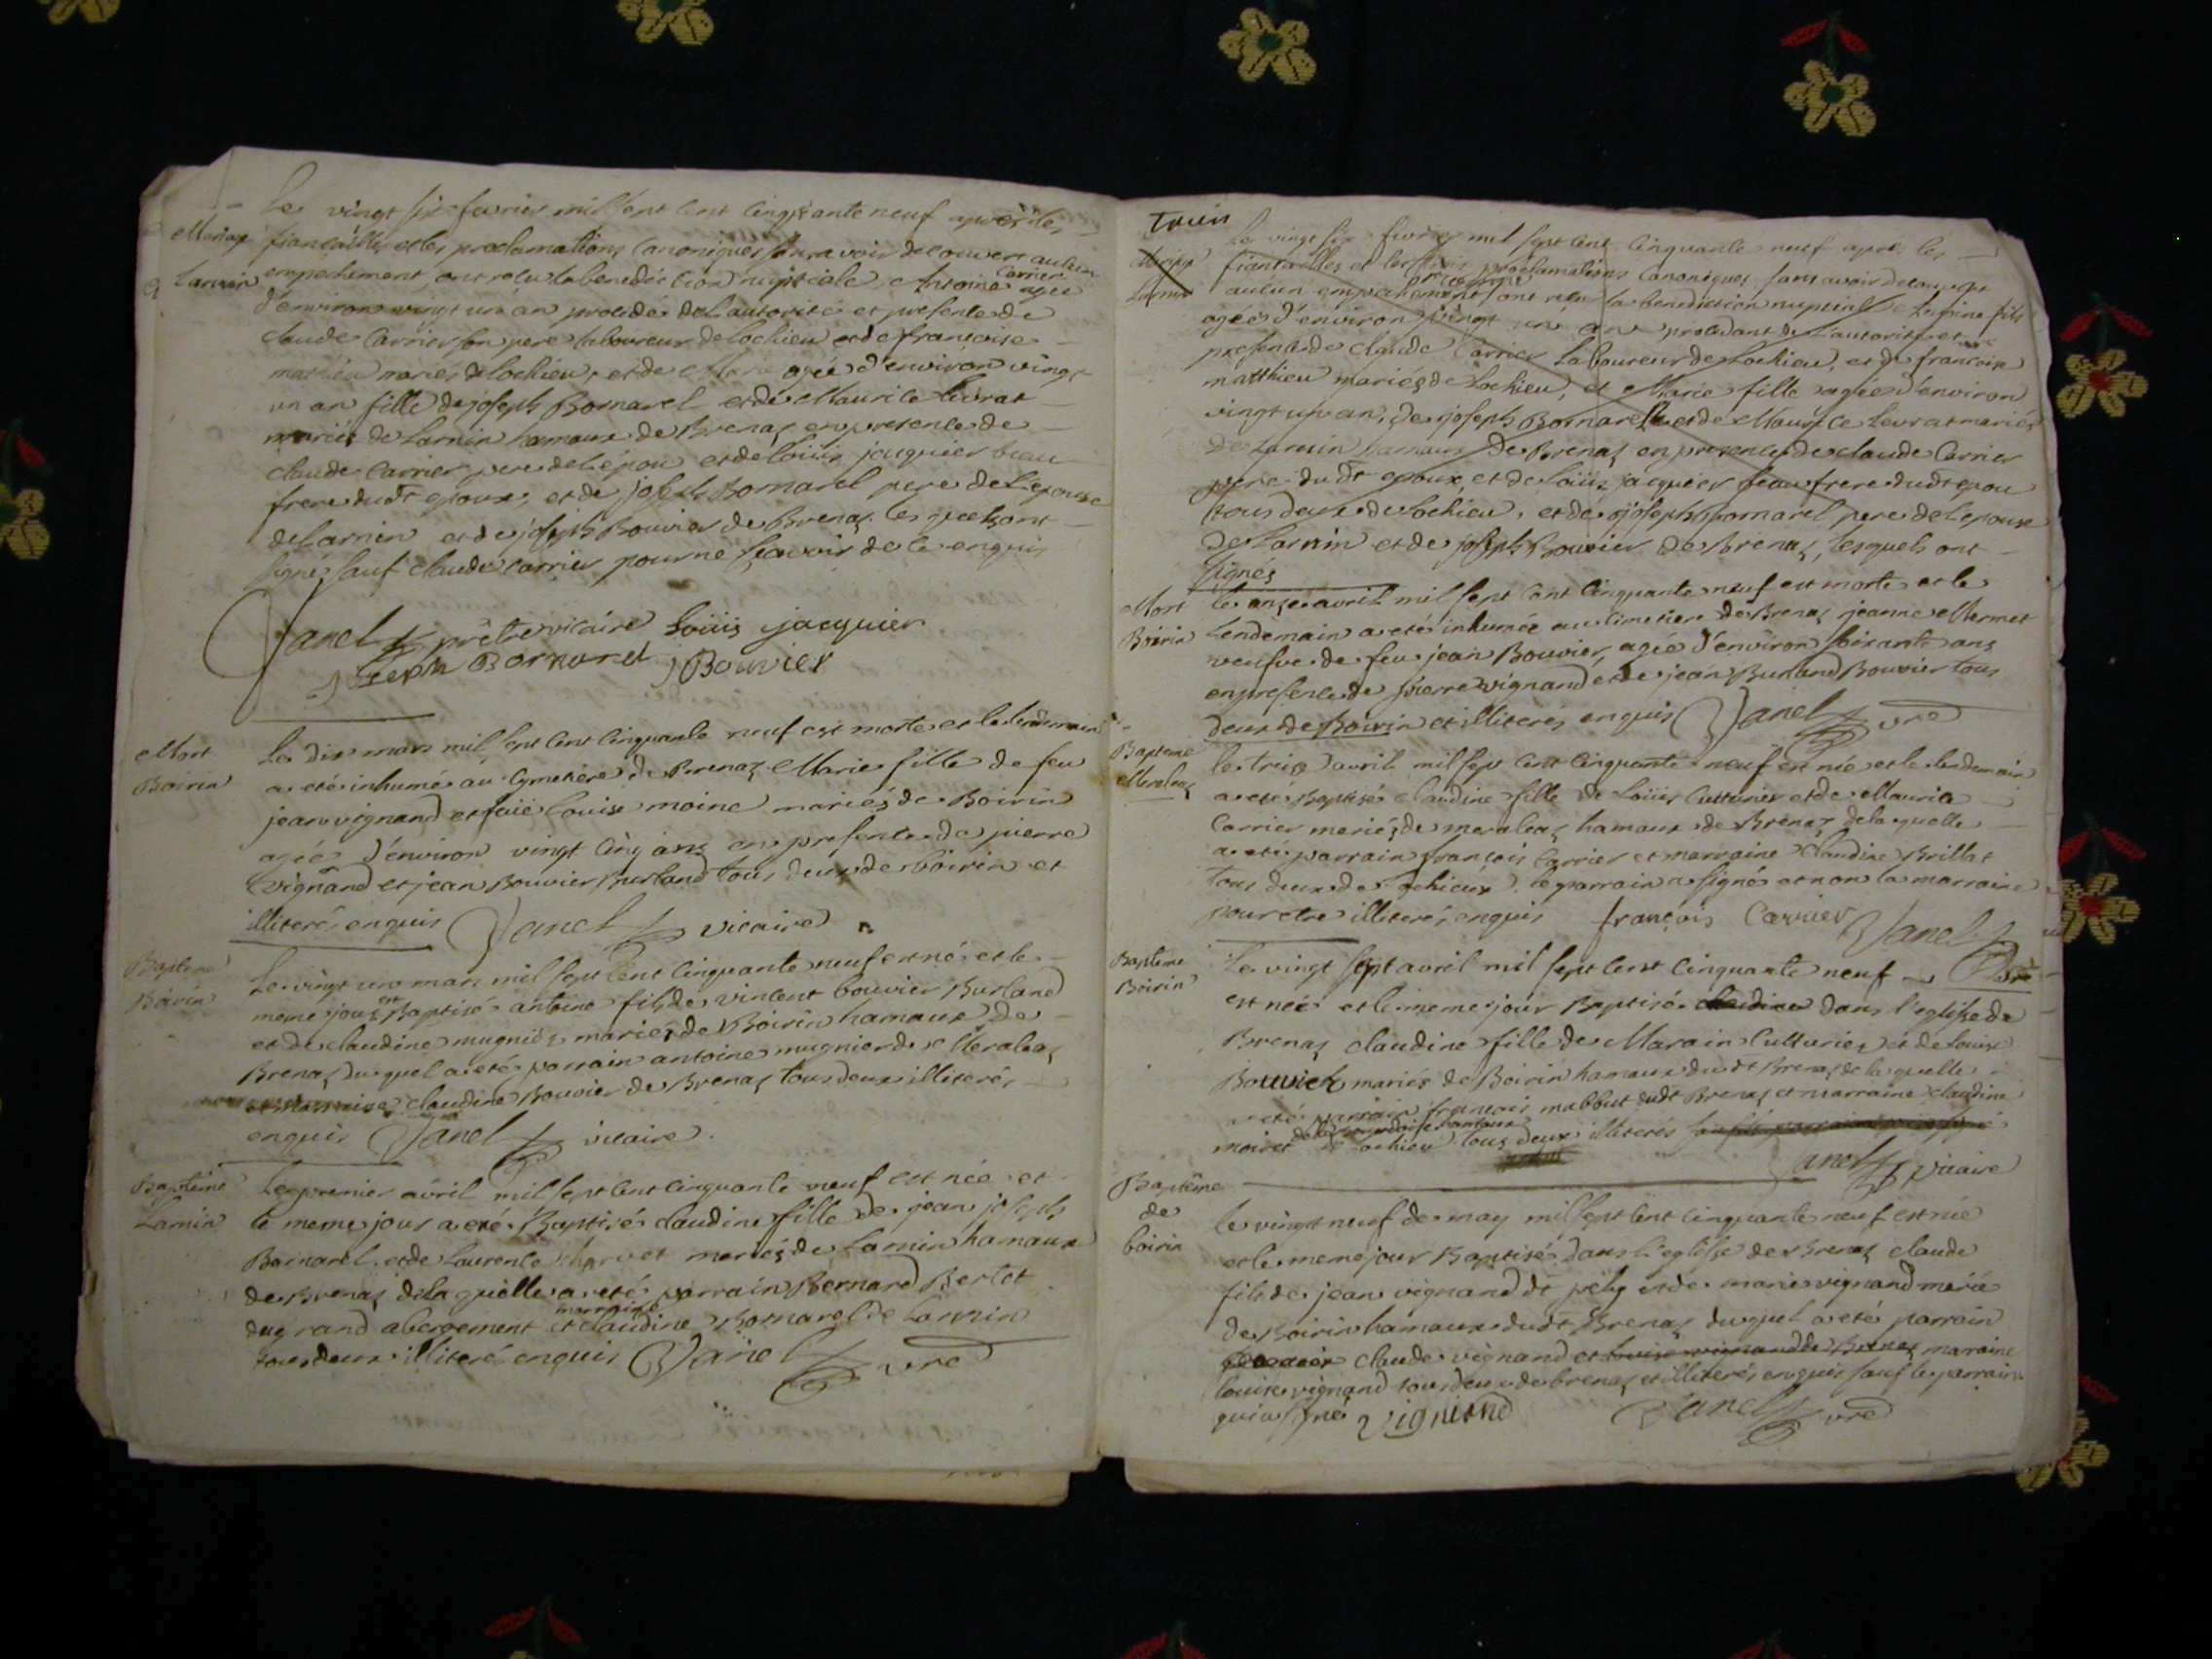 Le vingt six fevrier mil sept cent cinquante neuf après les
Mariage
fiançailles et les proclamations canoniques sans avoir decouvert aucun
Larnin
empechement, ont reçu la benediction nuptiale Antoine Carrier agée
d'environ vingt un an procedé de l'autorité et presence de
claude Carrier son pere laboureur de lochieu et de françoise
mathieu mariés de lochieu, et de Marie agée d'environ vingt
un an fille de joseph Bornarel et de Maurice Levrat
mariés de Larnin hamaux de Brenaz en presence de
claude Carrier pere de l'épou et de loüis jacquier beau
frere dudt epoux, et de joseph Bornarel pere de l'epouse
de larnin et de joseph Bouvier de Brenaz. lesquels ont
signés sauf claude carrier pour ne sçavoir de ce enquis
Janel prêtre vicaire Loüis jacquier
joseph Bornarel jBouvier
Mort
Boirin
Le dix mars mil sept cent cinquante neuf est morte et le lendemain
a eté inhumé au cymetière de Brenaz Marie fille de feu
jean vignand et louise moine mariés de Boirin
agée d'environ vingt cinq ans en presence de pierre
vignand et jean Bouvier Burland tous deux de boirin et
illiterés enquis Janel vicaire
Bapteme
Boirin
Le vingt un mars mil sept cent cinquante neuf est né et le
meme jour est Baptisé antoine fils de vincent bouvier Burland
et de claudine mugnier mariés de Boirin hamaux de
Brenaz duquel a eté parrain antoine mugnier de Meraleaz
et marraine claudine Bouvier de Brenaz tous deux illiterés
enquis Janel vicaire.
Baptême
Larnin
Le premier avril mil sept cent cinquante neuf est née et
le meme jour a eté Baptisé claudine fille de jean joseph
Bornarel et de Laurence charvet mariés de Larnin hamaux
de Brenaz de laquelle a eté parrain Bernard Bertet
du grand abergement et marraine claudine Bornarel de Larnin
tous deux illiterés enquis Janel vre
Le vingt six fevrier mil sept cent cinquante neuf après les
Mariage
Larnin
fiancailles et les proclamations canoniques sans avoir decouvert
aucun empechement ont reçu la benediction nuptiale fils
agée d'environ vingt un an procedant de l'autorité et
presence de claude Carrier laboureur de Lochieu, et de francoise
matthieu mariés de Lochieu, et Marie fille agée d'environ
vingt un an, de joseph Bornarel et de Maurice Levrat mariés
de Larnin hamaux de Brenaz en presence de claude Carrier
pere dudt epoux, et de loüis jacquier beau frere dudt epou
tous deux de lochieu, et de joseph bornarel pere de l'epouse
de Larnin et de joseph Bouvier de Brenaz, lesquels ont
signés
Mort
Boirin
le onze avril mil sept cent cinquante neuf est morte et le
lendemain a eté inhumée au cimetiere de Brenaz jeanne Mermet
veufve de feu jean Bouvier, agée d'environ soixante ans
en presence de pierre vignand et de jean Burland Bouvier tous
deux de Boirin et illiterés enquis Janel vre
Bapteme
Meraleaz
le treize avril mil sept cent cinquante neuf est née et le lendemain
a eté Baptisée claudine fille de loüis Cutturier et de Maurice
Carrier mariés de meraleaz hamaux de Brenaz de laquelle
a eté parrain françois Carrier et marraine claudine Brillat
tous deux de lochieux. le parrain a signé et non la marraine
pour etre illiterés enquis françois Carrier Janel
vre
Bapteme
Boirin
Le vingt sept avril mil sept cent cinquante neuf
est née et le meme jour Baptisé dans l'eglise de
Brenaz claudine fille de Marain Cutturier et de louise
Bouvier mariés de Boirin hamaux dudt Brenaz de laquelle
a eté parrain françois mabbut dudt Brenaz et marraine claudine
moiret de lochieu tous deux illiterés
Janel vicaire
Baptême
de
boirin
le vingt neuf de may mil sept cent cinquante neuf est née
et le meme jour Baptisé dans l'eglise de Brenaz claude
fils de jean vignand dt pely et de marie vignand mariés
de Boirin hamaux dudt Brenaz duquel a eté parrain
claude vignand et louise vignand de Brenaz marraine
louise vignand tous deux de brenaz et illiterés enquis sauf le parrain
qui a signé vigniand Janel vre